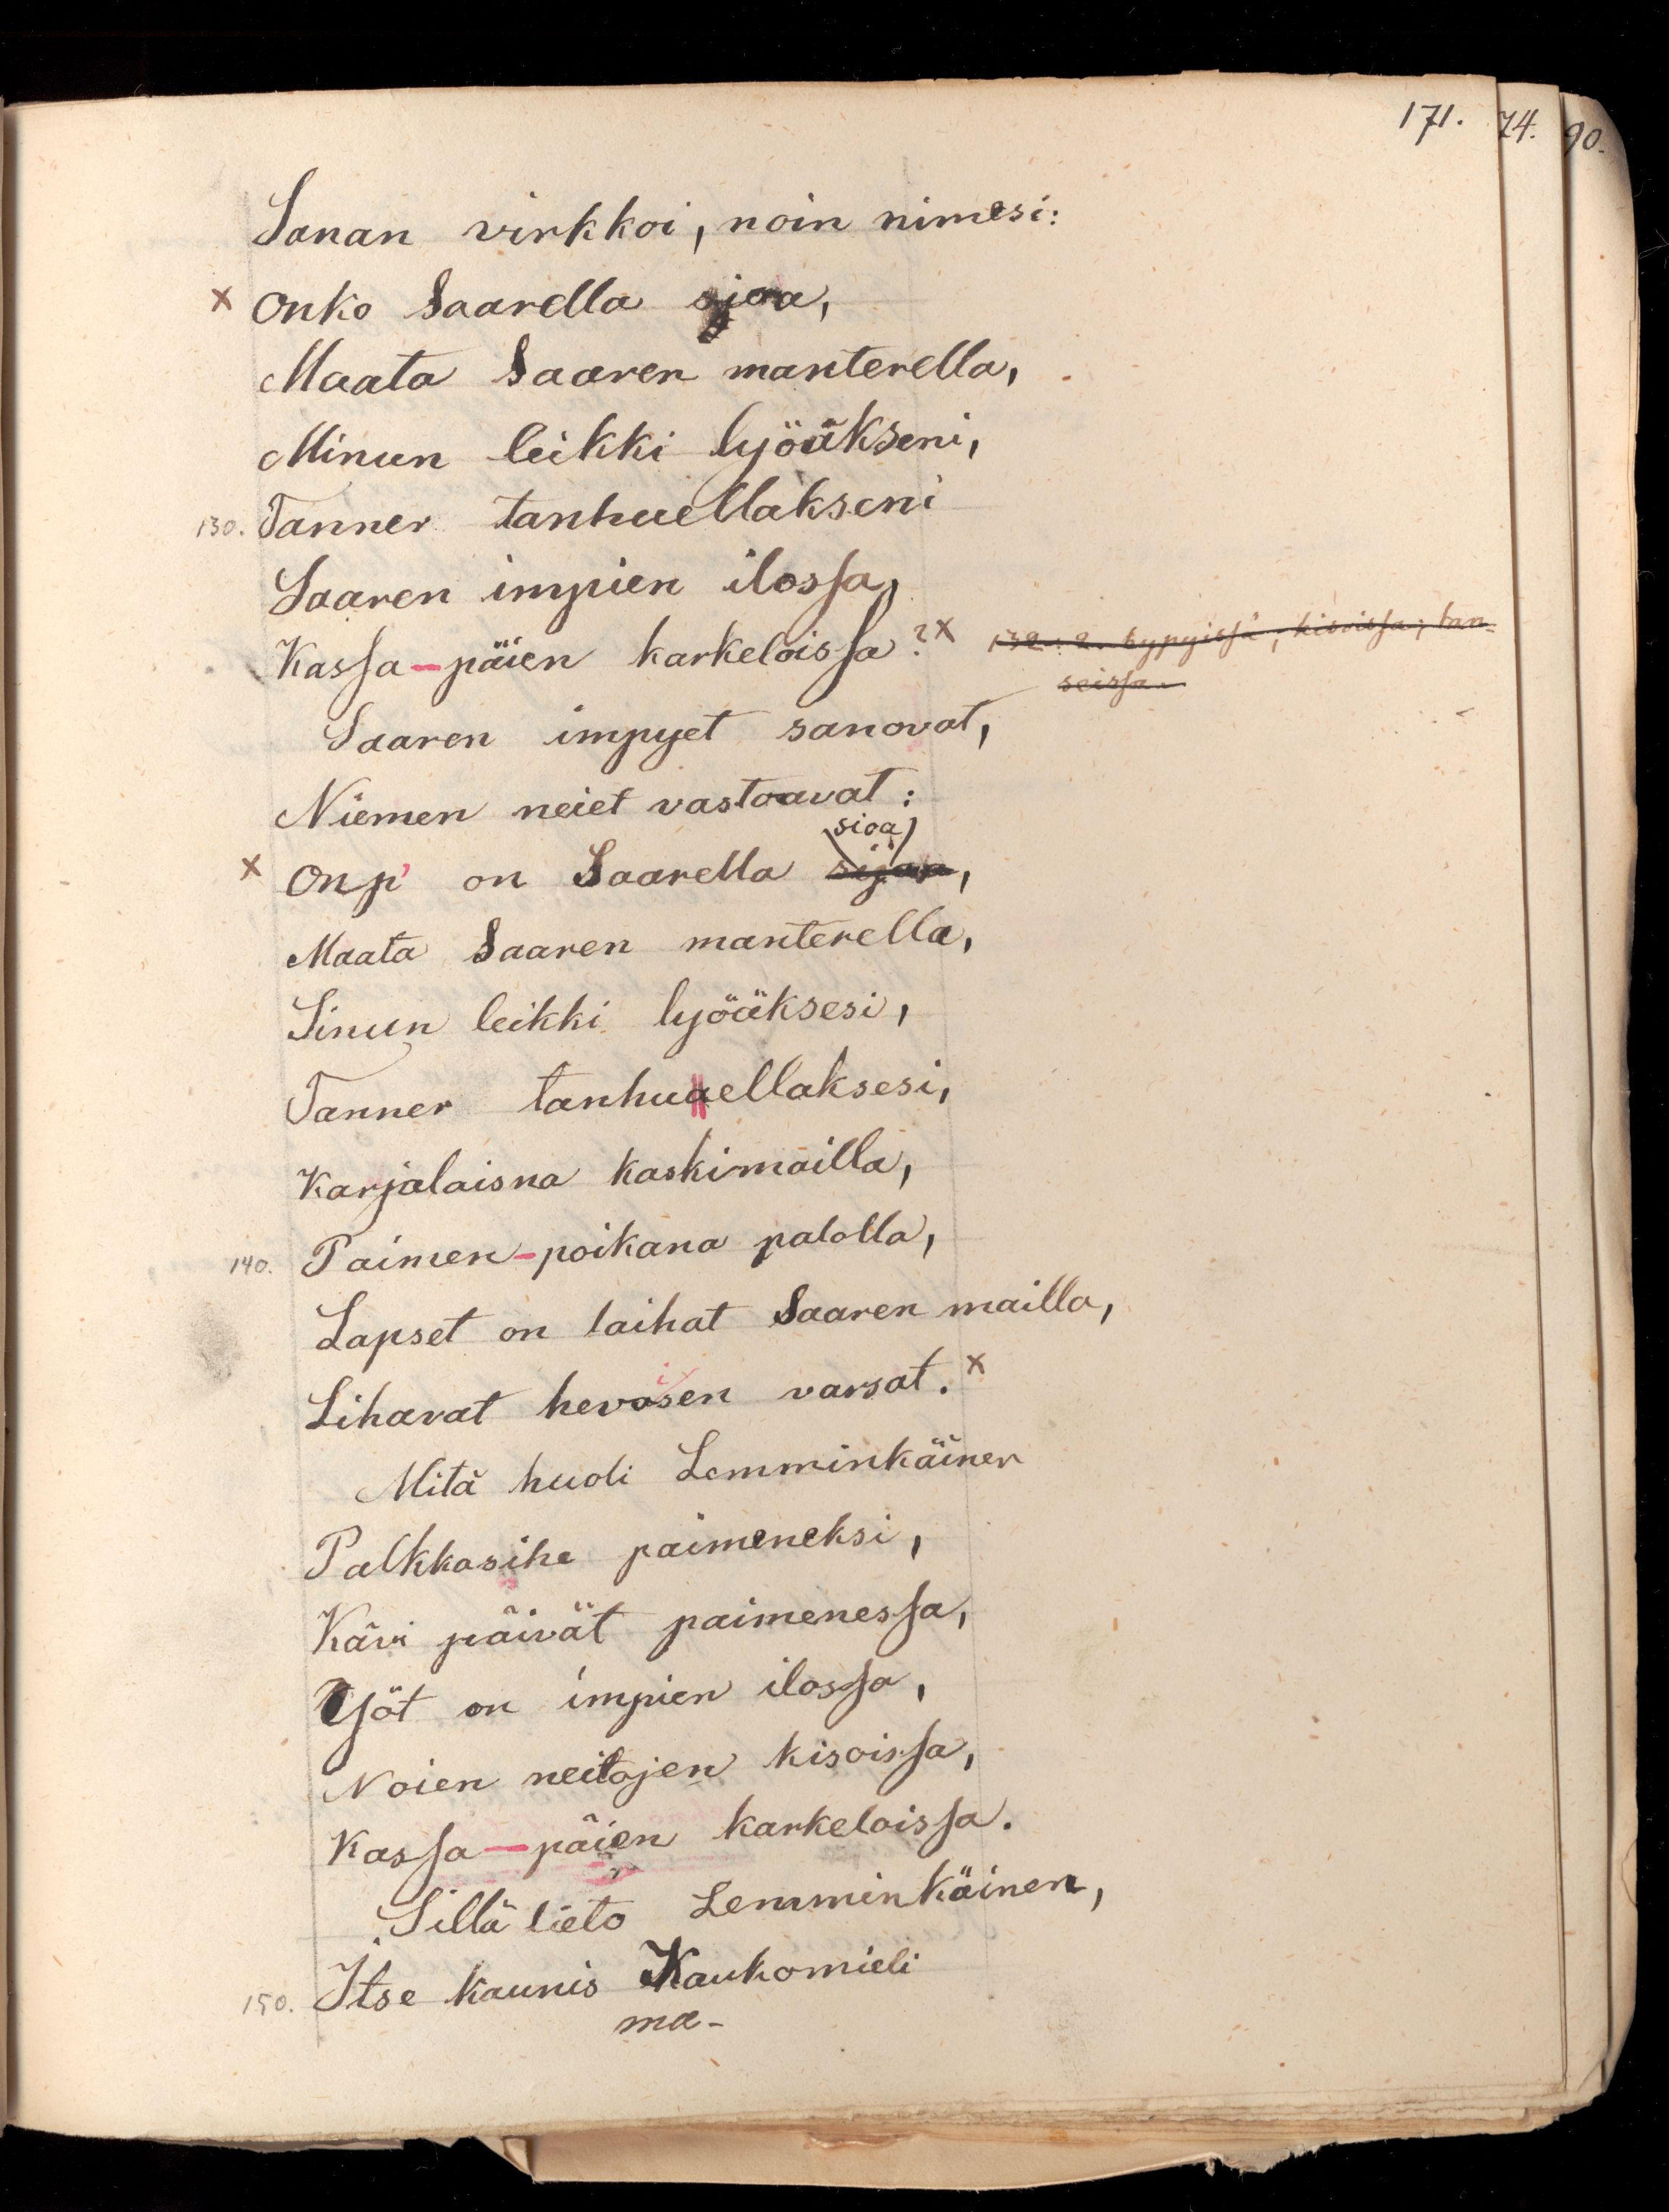 171. 74. 90.
Sanan virkkoi, noin nimesi:
x Onko Saarella sioa,
Maata Saaren manterella,
Minun leikki lyöäkseni,
130. Tanner tanhuellakseni
Saaren impien ilossa,
Kassa-päien karkeloissa? x 132: 2. hypyissä, kisoissa, tan=
seissa.
Saaren impyet sanovat,
Niemen neiet vastoavat:
sioa
x Onp' on Saarella sijoa,
Maata Saaren manterella,
Sinun leikki lyöäksesi,
Tanner tanhuaellaksesi,
Karjalaisna kaskimailla,
140. Paimen-poikana palolla,
Lapset on laihat Saaren mailla,
i
Lihavat hevosen varsat. x
Mitä huoli Lemminkäinen
Palkkasihe paimeneksi,
Kävi päivät paimenessa,
Yöt on impien ilossa,
Noien neitojen kisoissa,
Kassa-päien karkeloissa.
Sillä lieto Lemminkäinen,
150. Itse kaunis Kaukomieli
ma-